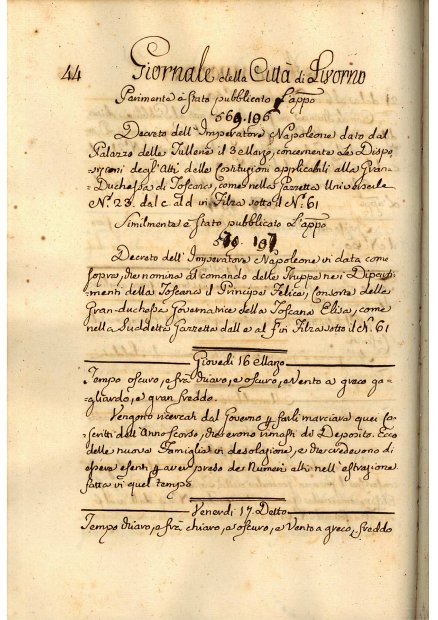 44 Giornale della Città di Livorno
Parimente è stato pubblicato l'appo
569. 196
Decreto dell'Imperatore Napoleone dato dal
Palazzo delle Tullerie il 3 Marzo, concernente le Dispo
sizioni degl'Atti delle Costituzioni applicabili alla Gran=
=Duchessa di Toscana, come nella Gazzetta Universale
N.º 23. dal c al d in Filza sotto il N.º 61
Similmente è stato pubblicato l'appo
570. 197
Decreto dell'Imperatore Napoleone in data come
sopra, che nomina al comando delle Truppe nei Diparti
menti della Toscana il Principe Felice, Consorte della
Gran-duchessa Governatrice della Toscana Elisa, come
nella suddetta Gazzetta dall e al f in Filza sotto il N.º 61
Giovedì 16 Marzo
Tempo oscuro, e frà chiaro, e oscuro, e Vento a greco ga=
=gliardo, e gran freddo.
Vengono ricercati dal Governo p farli marciare quei Co=
scritti dell'Anno scorso, che erono rimasti di Deposito. Ecco
delle nuove Famiglie in desolazione, e che credevono di
essere esenti p aver preso de Numeri alti nell'estrazione
fatta in quel tempo
Venerdì 17. Detto
Tempo chiaro, e frà chiaro, e oscuro, e Vento a greco, freddo